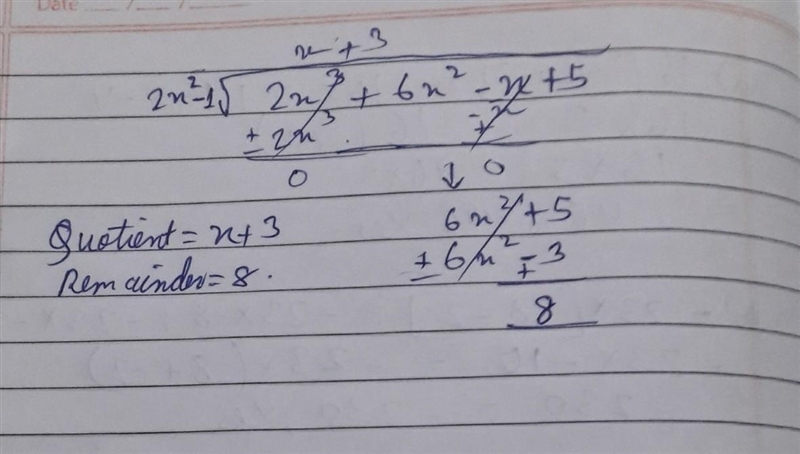 Date __/__/__
x + 3
2x²-1√ 2x³ + 6x² - x + 5
± 2x³ ∓ x
0 ↓ 0
6x² + 5
± 6x² ∓ 3
8
Quotient = x+3
Remainder = 8.